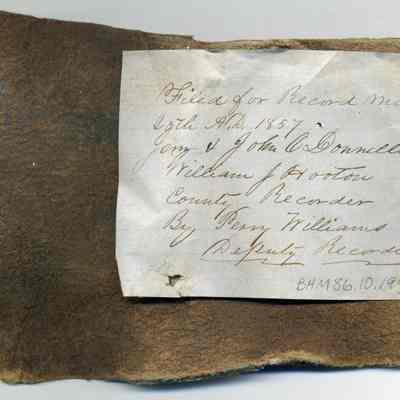 Filed for Record Ma
25th A.D. 1857
Jerry & John O'Donnell
William J Hooton
County Recorder
By Perry Williams
Deputy Recorde
BHM86.10.19